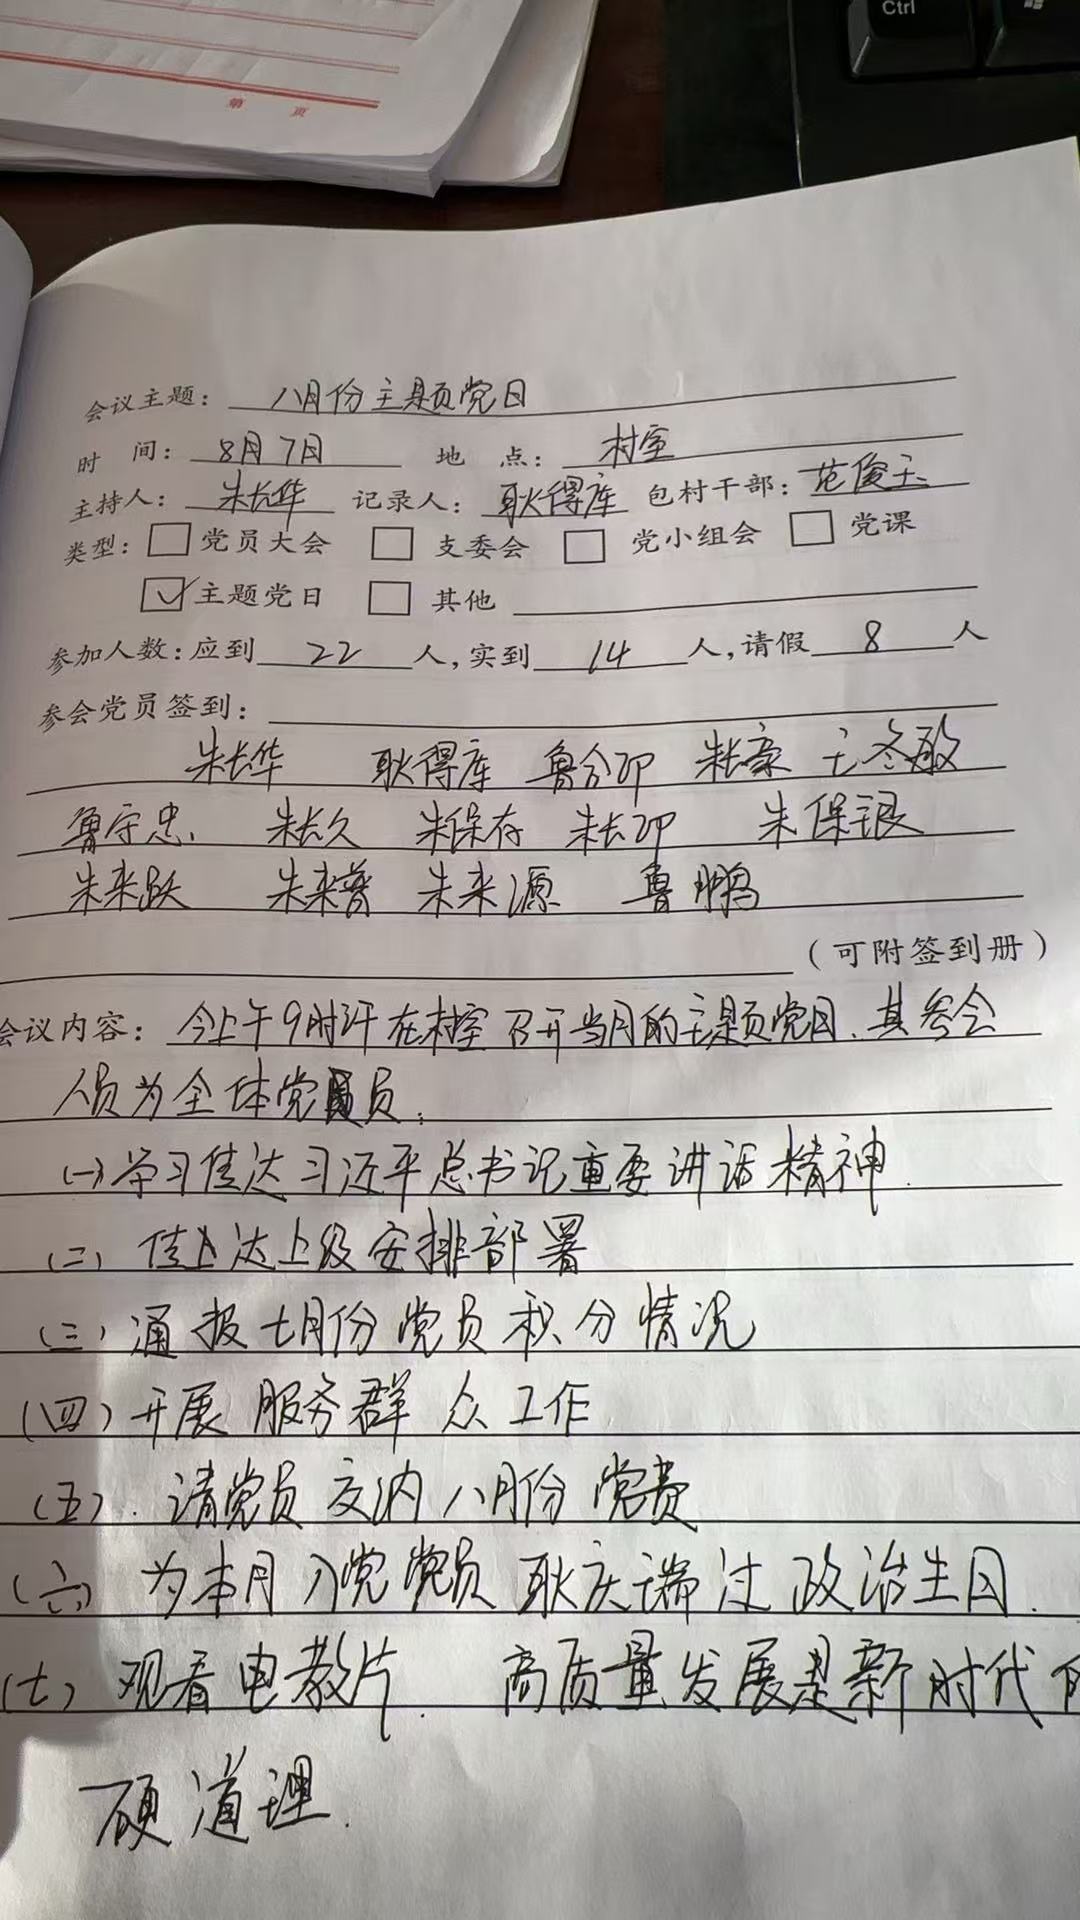 Ctrl
第 页
会议主题： 八月份主题党日
时 间： 8月7日 地 点： 村室
主持人： 朱长华 记录人： 耿得库 包村干部： 范俊玉
类型： 党员大会 支委会 党小组会 党课
主题党日 其他
参加人数：应到 22 人，实到 14 人，请假 8 人
参会党员签到：
朱长华 耿得库 鲁合印 朱长豪 王冬敏
鲁守忠 朱长久 朱保存 朱长印 朱保银
朱来跃 朱来普 朱来源 鲁鹏
（可附签到册）
会议内容： 今上午9时许在村室召开当月的主题党日. 其参会
人员为全体党员.
(一) 学习传达习近平总书记重要讲话精神.
(二) 传达上级安排部署
(三) 通报七月份党员积分情况
(四) 开展服务群众工作
(五). 请党员交纳八月份党费
(六) 为本月入党党员耿庆端过政治生日.
(七) 观看电教片. 高质量发展是新时代的
硬道理.